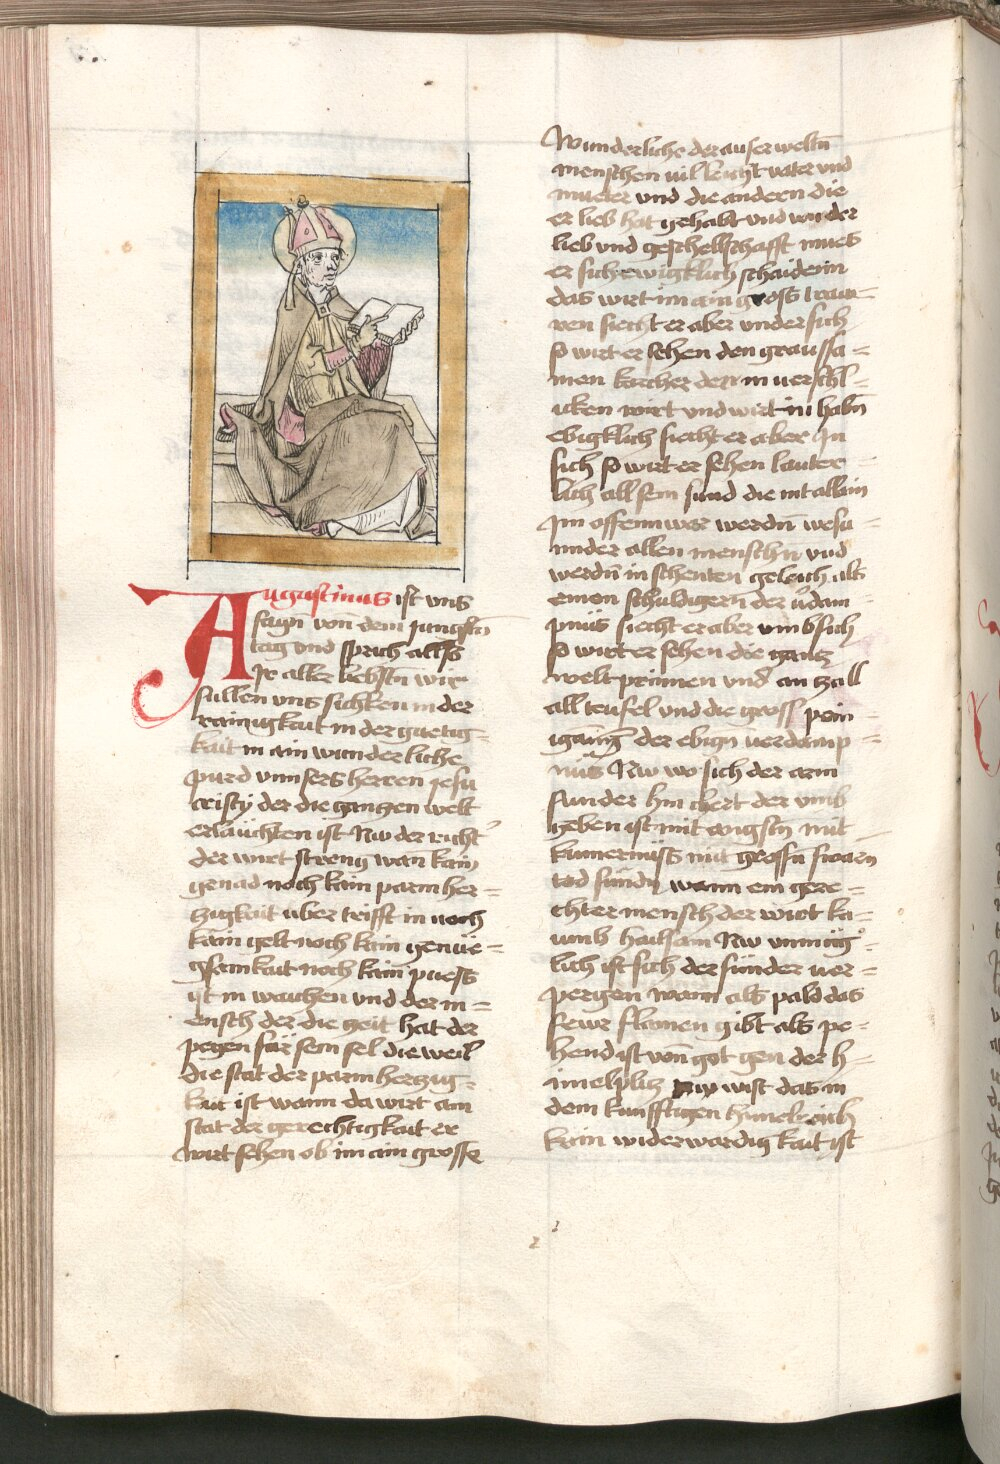 Augustinus ist uns
sagn̄ von dem jungstn̄
tag und sprich allso
Ir aller liebstn̄ wir
sullen uns sichken in der
rainigkait in der guetig
kait in ain wunderliche
purd vnnsers herren jesu
cristy der die gantzen welt
erlauchten ist Nw der richt
der wirt streng wan̄ kain
genad noch kain parmher=
tzigkait uber trifft in noch
kain gelt noch kain genüe=
gsamkait noch kain puess
ist in wachen und der m=
ensch der die zeit hat der
pegen für sein sel die weil
die stat der parmhertzig=
kait ist wann da wirt ain
stat der gerechtigkait er
wirt sehen ob im ain grosse
Wunderliche der auserweltn̄
menschen uil leicht vater und
mueter und die andern die
er lieb hat gehabt und von der
lieb und geselhschafft mues
er sich ewigklich schaiden in
das wirt im ain gross traw=
ren siecht er aber under sich
so wirt er sehen den graussa=
men karcher der in uerschl=
icken wirt und wirt in habn̄
ebigklich siecht er aber in
sich so wirt er sehen lauter
lich all sein sund die nit allain
Im offennwar werdn̄
under allen menschn̄ und
werdn̄ in schenten geleich als
einen schuldigern der vdam
pnüs siecht er aber umb sich
so wirt er sehen die gantz
welt prinnen und an zall
all teufel und die gross pein
igung der ebign̄ uerdamp=
nüs Nw wo sich der arm
sunder hin chert der umb
geben ist mit angstn̄ mit
kumernüss mit grossn̄ swarn̄
tod sundn̄ wann ein gere=
chter mensch der wirt ka=
umb hailsam Nw unmüg=
lich ist sich der sünder uer=
pergen wann als pald das
fewr flamen gibt als pe=
hend ist von got gen der h=
imelplitz Nw wist das in
dem kunfftigen himelreich
kain widerwardigkait ist